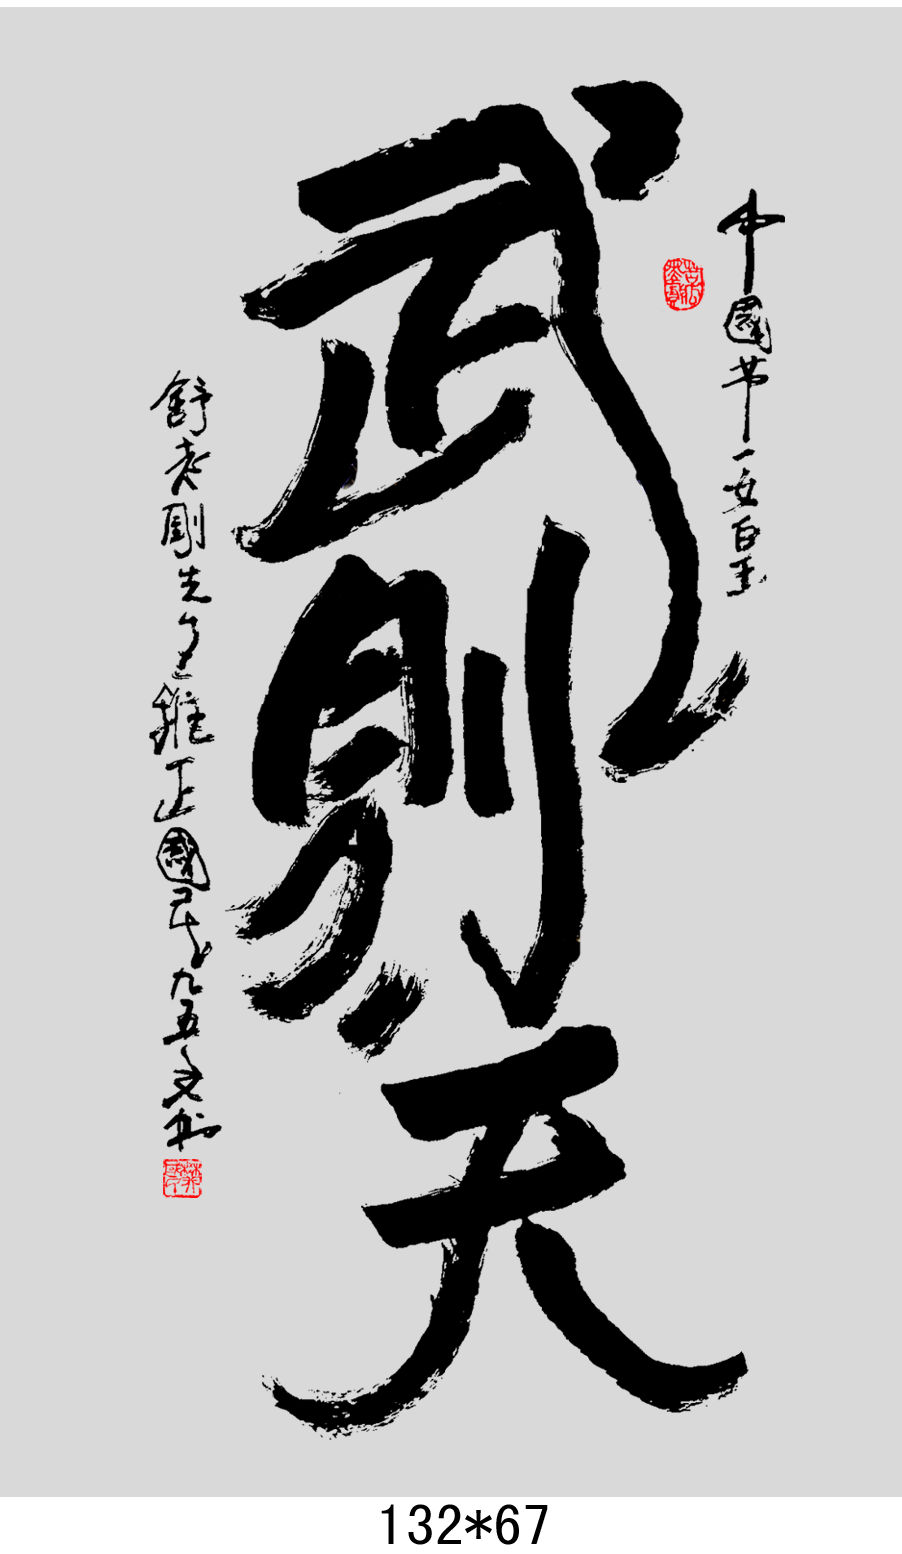 中國节一女皇
武则天
舒老剛先生雅正國民九五文书
132*67